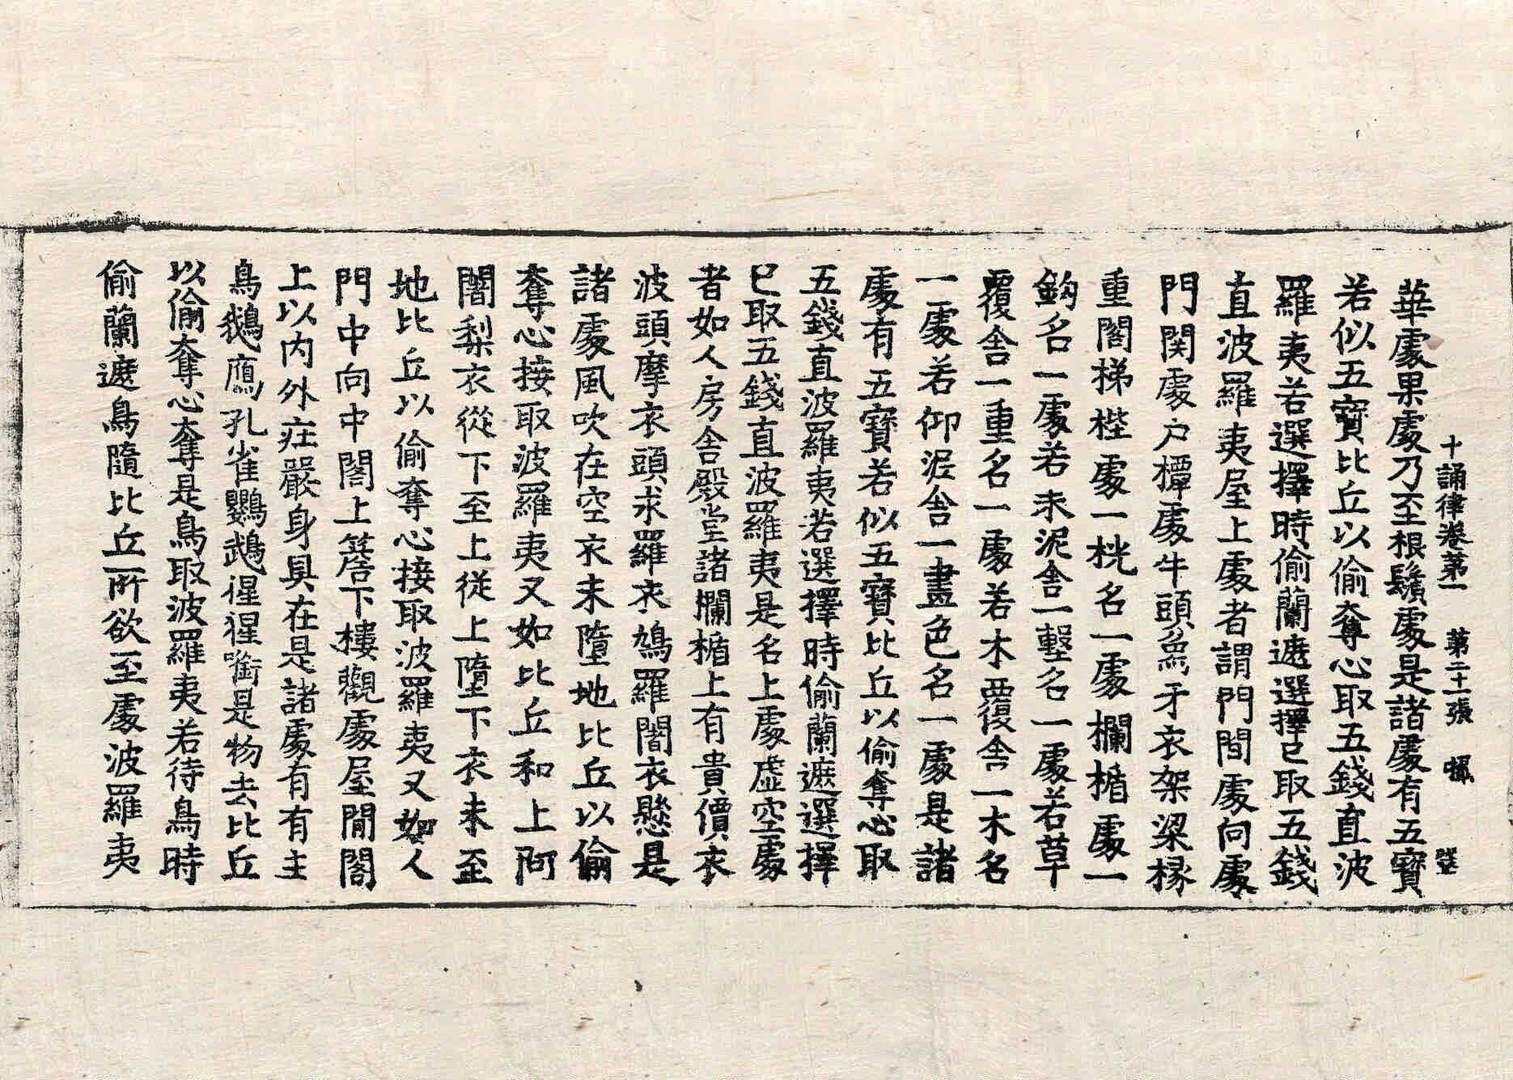 十誦律卷第一　第二十一張　㘓
華處果處乃至根鬚處是諸處有五寶
若似五寶比丘以偷奪心取五錢直波
羅夷若選擇時偷蘭遮選擇已取五錢
直波羅夷屋上處者謂門間處向處
門関處户橝處牛頭鳥牙衣架梁椽
重閣梯桎處一桄名一處欄楯處一
鈎名一處若未泥舍一墼名一處若草
覆舍一重名一處若木覆舍一木名
一處若仰泥舍一畫色名一處是諸
處有五寶若似五寶比丘以偷奪心取
五錢直波羅夷若選擇時偷蘭遮選擇
已取五錢直波羅夷是名上處虛空處
者如人房舍殿堂諸欄楯上有貴價衣
波頭摩衣頭求羅衣鳩羅闍衣懸是
諸處風吹在空衣未墮地比丘以偷
奪心接取波羅夷又如比丘和上阿
闍梨衣從下至上從上墮下衣未至
地比丘以偷奪心接取波羅夷又如人
門中向中閣上簷下樓觀處屋閒閣
上以內外莊嚴身具在是諸處有有主
鳥鵝鴈孔雀鸚鵡猩猩㗸是物去比丘
以偷奪心奪是鳥取波羅夷若待鳥時
偷蘭遮鳥隨比丘所欲至處波羅夷